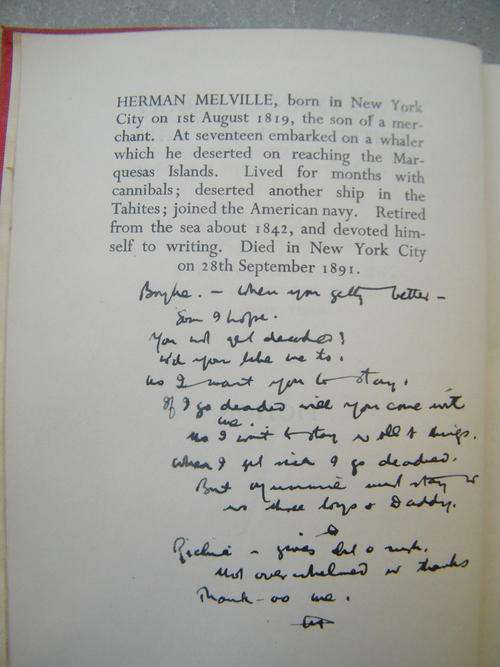 HERMAN MELVILLE, born in New York
City on 1st August 1819, the son of a mer-
chant. At seventeen embarked on a whaler
which he deserted on reaching the Mar-
quesas Islands. Lived for months with
cannibals; deserted another ship in the
Tahites; joined the American navy. Retired
from the sea about 1842, and devoted him-
self to writing. Died in New York City
on 28th September 1891.
— when you getty better —
Soon I hope.
You not get deaded?
wd you like me to.
no I want you to stay.
If I go deaded will you come with
me.
no I want to stay w all t things.
When I get sick I go deaded.
But Mummie must stay w
us three boys & Daddy.
Richie — gives
Not overwhelmed w thanks
Thank-oo me.